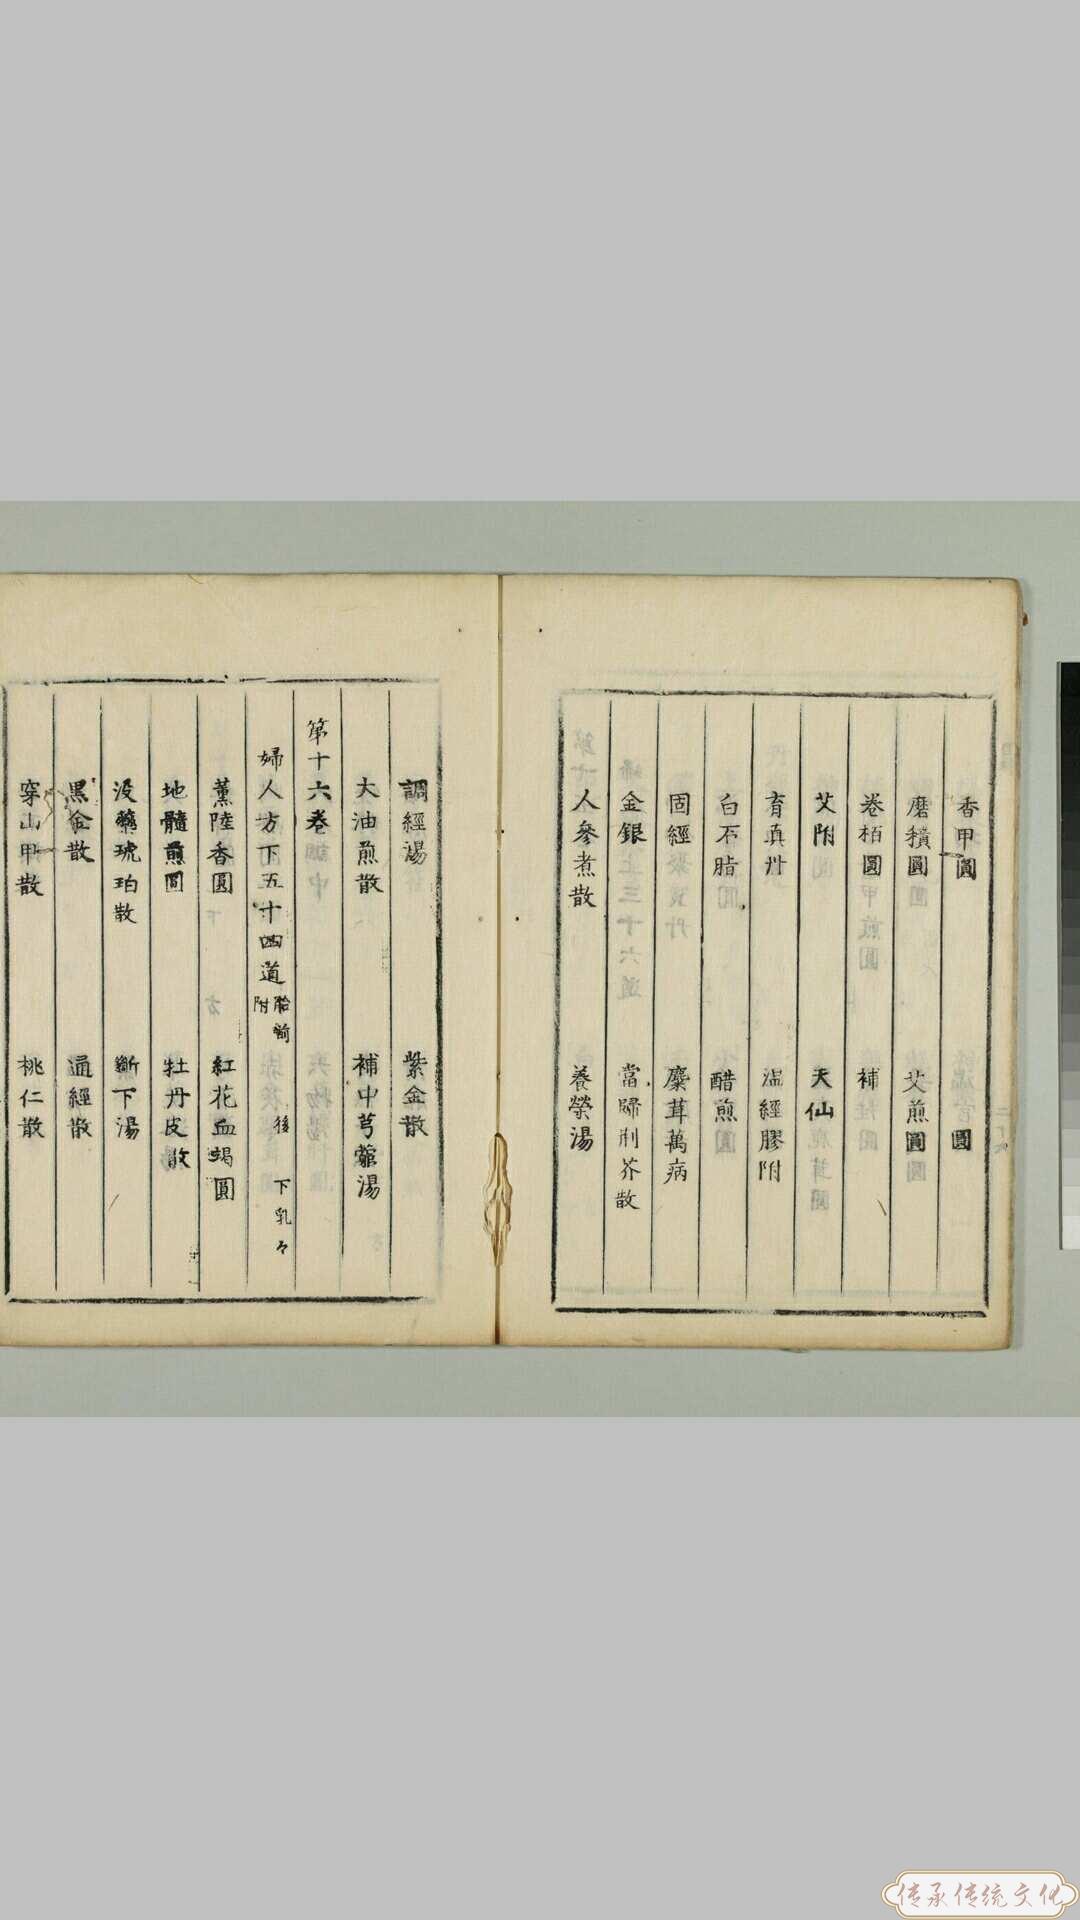 香甲圓 圓
磨積圓 艾煎圓
卷栢圓 補
艾附 天仙
育真丹 温經膠附
白石脂 醋煎圓
固經 麋茸萬病
金銀 當歸荆芥散
人參煮散 養榮湯
調經湯 紫金散
大油煎散 補中芎藭湯
第十六卷
婦人方下五十四道 胎前 後 下乳々 附
薰陸香圓 紅花血竭圓
地髓煎圓 牡丹皮散
没藥琥珀散 斷下湯
黑金散 通經散
穿山甲散 桃仁散
传承传统文化